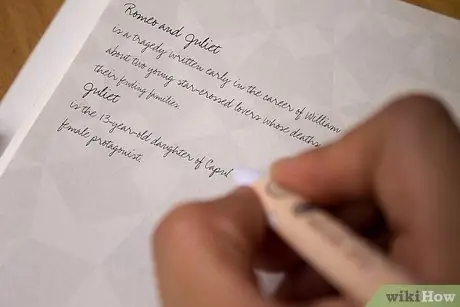 Romeo and Juliet
is a tragedy written early in the career of William
about two young star-crossed lovers whose deaths
their feuding families.
Juliet
is the 13-year-old daughter of Capul
female protagonist.
wikiHow